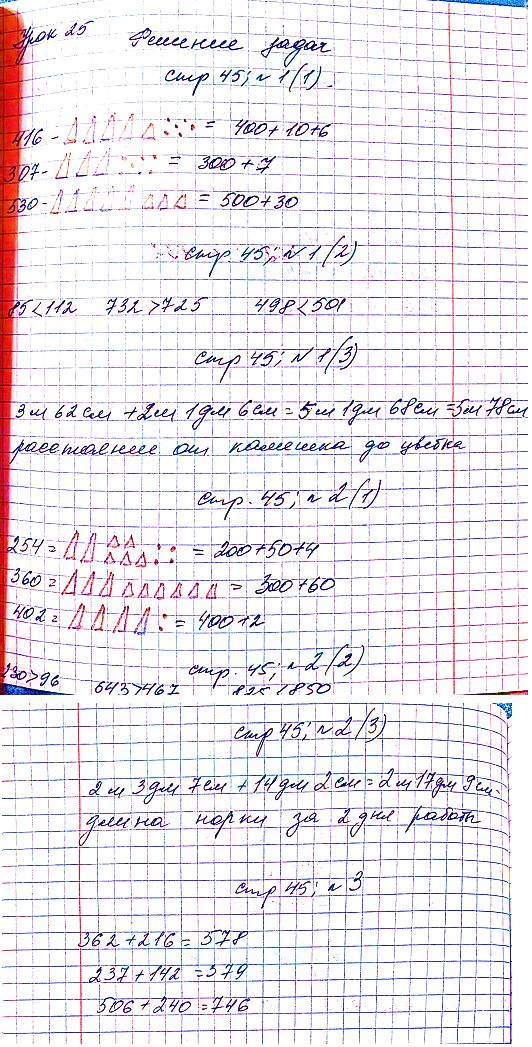 Урок 25 Решение задач
стр 45; № 1(1).
416 - = 400+10+6
307 - = 300+7
530 - = 500+30
стр. 45; № 1(2)
85<112 732>725 498<501
стр 45; № 1(3)
3 м 62 см +2м 1дм 6см = 5м 1дм 68см =5м 78см
расстояние от камешка до цветка
стр. 45; № 2(1)
254 = = 200+50+4
360 = = 300+60
402 = = 400+2
стр. 45; № 2(2)
230>96 643>467 825<850
стр 45; № 2(3)
2 м 3дм 7см +14дм 2см = 2м 17дм 9см-
длина норки за 2 дня работы
стр 45; № 3
362+216 = 578
237+142 =379
506+240 =746